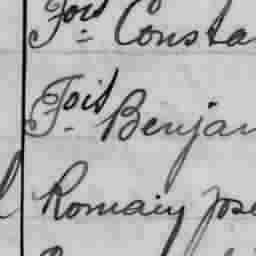 Fois Consta
Fois Benjan
Romain Jose